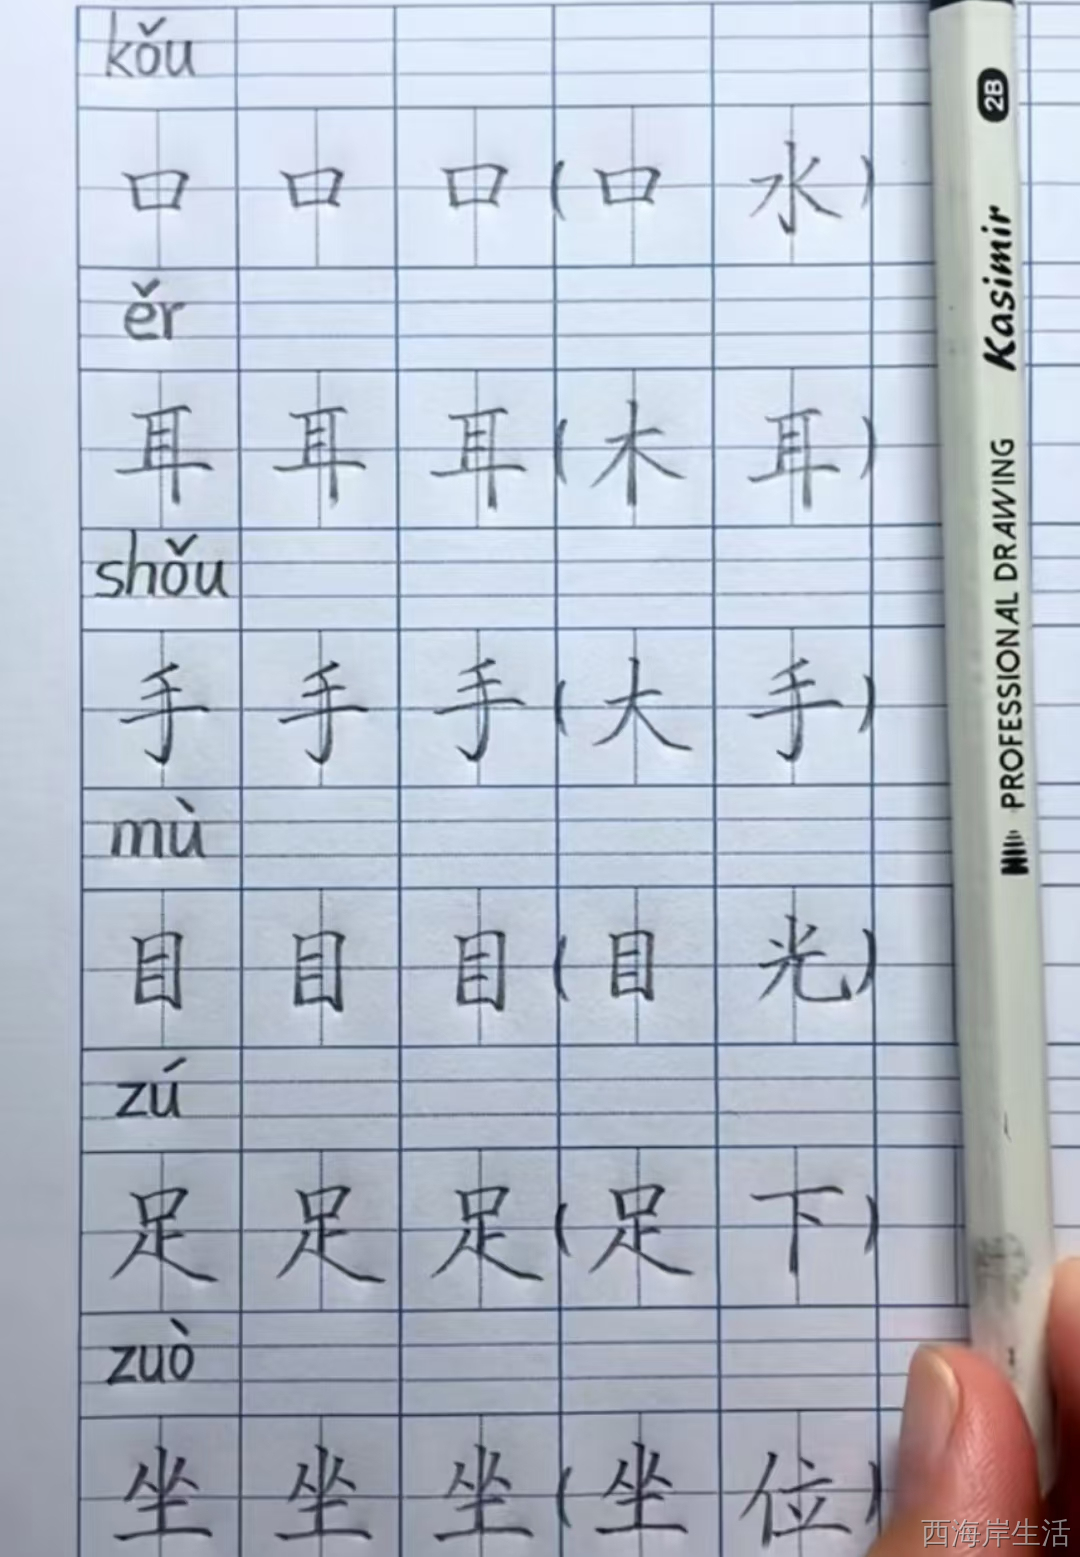 kǒu
口 口 口 (口 水)
ěr
耳 耳 耳 (木 耳)
shǒu
手 手 手 (大 手)
mù
目 目 目 (目 光)
zú
足 足 足 (足 下)
zuò
坐 坐 坐 (坐 位)
PROFESSIONAL DRAWING Kasimir 2B
西海岸生活